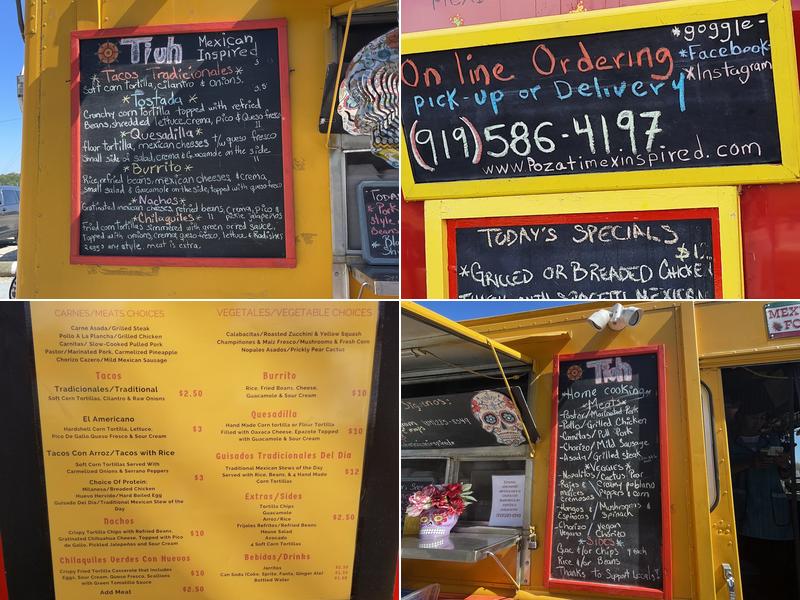 Tiuh Mexican
Inspired
*Tacos Tradicionales* 3
Soft corn Tortilla, cilantro & onions.
*Tostada* 3.5
Crunchy corn Tortilla topped with refried
Beans, shredded lettuce, crema, pico & Queso fresco
*Quesadilla* 11
flour tortilla, mexican cheeses queso fresco
Small side of salad, crema & Guacamole on the side
*Burrito* 11
Rice, refried beans, mexican cheeses, &crema,
small salad & Guacamole on the side, topped with queso fresco
*Nachos*
Gratinated mexican cheeses, refried beans, crema, pico &
*Chilaquiles* 11 pickle jalapeños
fried corn Tortillas simmered with green or red sauce,
Topped with onions, crema, queso fresco, lettuce & Radishes
2 eggs any style, meat is extra.
Toda
*Pork
style
Beans
*Bla
Sh
*goggle-
*Facebook
*Instagram
On line Ordering
pick-up or Delivery
(919)586-4197
www.Pozatimexinspired.com
TODAY'S SPECIALS
$1
*GRILLED OR BREADED CHICKE
CARNES/MEATS CHOICES
Carne Asada/Grilled Steak
Pollo A La Plancha/Grilled Chicken
Carnitas/ Slow-Cooked Pulled Pork
Pastor/Marinated Pork, Carmelized Pineapple
Chorizo Cazero/Mild Mexican Sausage
Tacos
Tradicionales/Traditional
Soft Corn Tortillas, Cilantro & Raw Onions $2.50
El Americano
Hardshell Corn Tortilla, Lettuce,
Pico De Gallo Queso Fresco & Sour Cream $3
Tacos Con Arroz/Tacos with Rice
Soft Corn Tortillas Served With
Carmelized Onions & Serrano Peppers
$3
Choice Of Protein:
Milanesa/Breaded Chicken
Huevo Hervido/Hard Boiled Egg
Guisado Del Dia/Traditional Mexican Stew of the
Day
Nachos
Crispy Tortilla Chips with Refried Beans,
Gratinated Chihuahua Cheese, Topped with Pico
de Gallo, Pickled Jalapeños and Sour Cream $10
Chilaquiles Verdes Con Huevos
Crispy Fried Tortilla Casserole that includes
Eggs, Sour Cream, Queso Fresco, Scallions
with Green Tomatillo Sauce $10
Add Meat $2.50
VEGETALES/VEGETABLE CHOICES
Calabacitas/Roasted Zucchini & Yellow Squash
Champiñones & Maiz Fresco/Mushrooms & Fresh Corn
Nopales Asados/Prickly Pear Cactus
Burrito
Rice, Fried Beans, Cheese,
Guacamole & Sour Cream $10
Quesadilla
Hand Made Corn tortilla or Flour Tortilla
Filled with Oaxaca Cheese, Epazote Topped
with Guacamole & Sour Cream $10
Guisados Tradicionales Del Dia
Traditional Mexican Stews of the Day
Served with Rice, Beans, & 4 Hand Made
Corn Tortillas $12
Extras/Sides
Tortilla Chips
Guacamole
Arroz/Rice
Frijoles Refritos/Refried Beans
House Salad
Avocado
4 Soft Corn Tortillas
$2.50
Bebidas/Drinks
Jarritos
Can Soda (Coke, Sprite, Fanta, Ginger Ale)
Bottled Water
Tiuh
*Home cooking*
*Meats*
-Pastor/Marinated Pork
-Pollo/Grilled Chicken
-Carnitas/Pull Pork
-Chorizo/Mild Sausage
-Asada/Grilled steak
*Veggies*
-Nopalitos/Cactus Pear
-Rajas & Creamy Poblano
Maices Peppers & corn
cremosos
-Hongos & Mushrooms &
Espinacas Spinach
-Chorizo Vegan
Vegano Chorizo
*SIDES*
Guac &/or Chips 4 each
Rice &/or Beans
Thanks To Support Locals!
MEX
FO